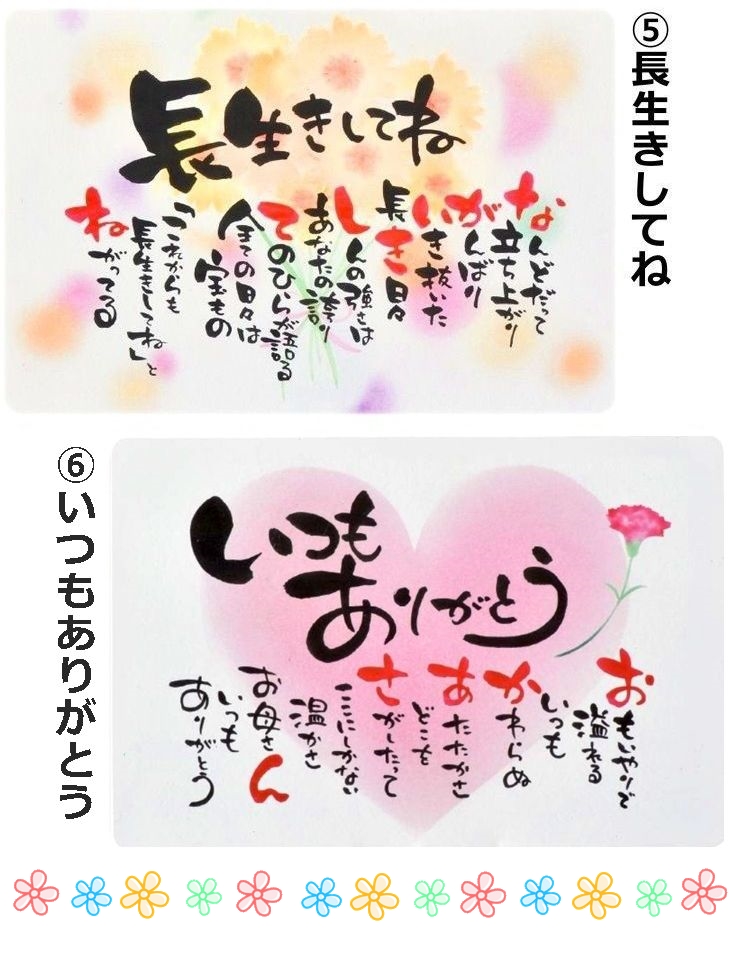 ⑤長生きしてね
長生きしてね
なんどだって
立ち上がり
がんばり
いき抜いた
長き日々
しんの強さは
あなたの誇り
てのひらが語る
全ての日々は
宝もの
「これからも
長生きしてね」と
ねがってる
⑥いつもありがとう
いつも
ありがとう
おもいやりで
溢れる
いつも
かわらぬ
あたたかさ
どこを
さがしたって
ここにしかない
温かさ
お母さん
いつも
ありがとう